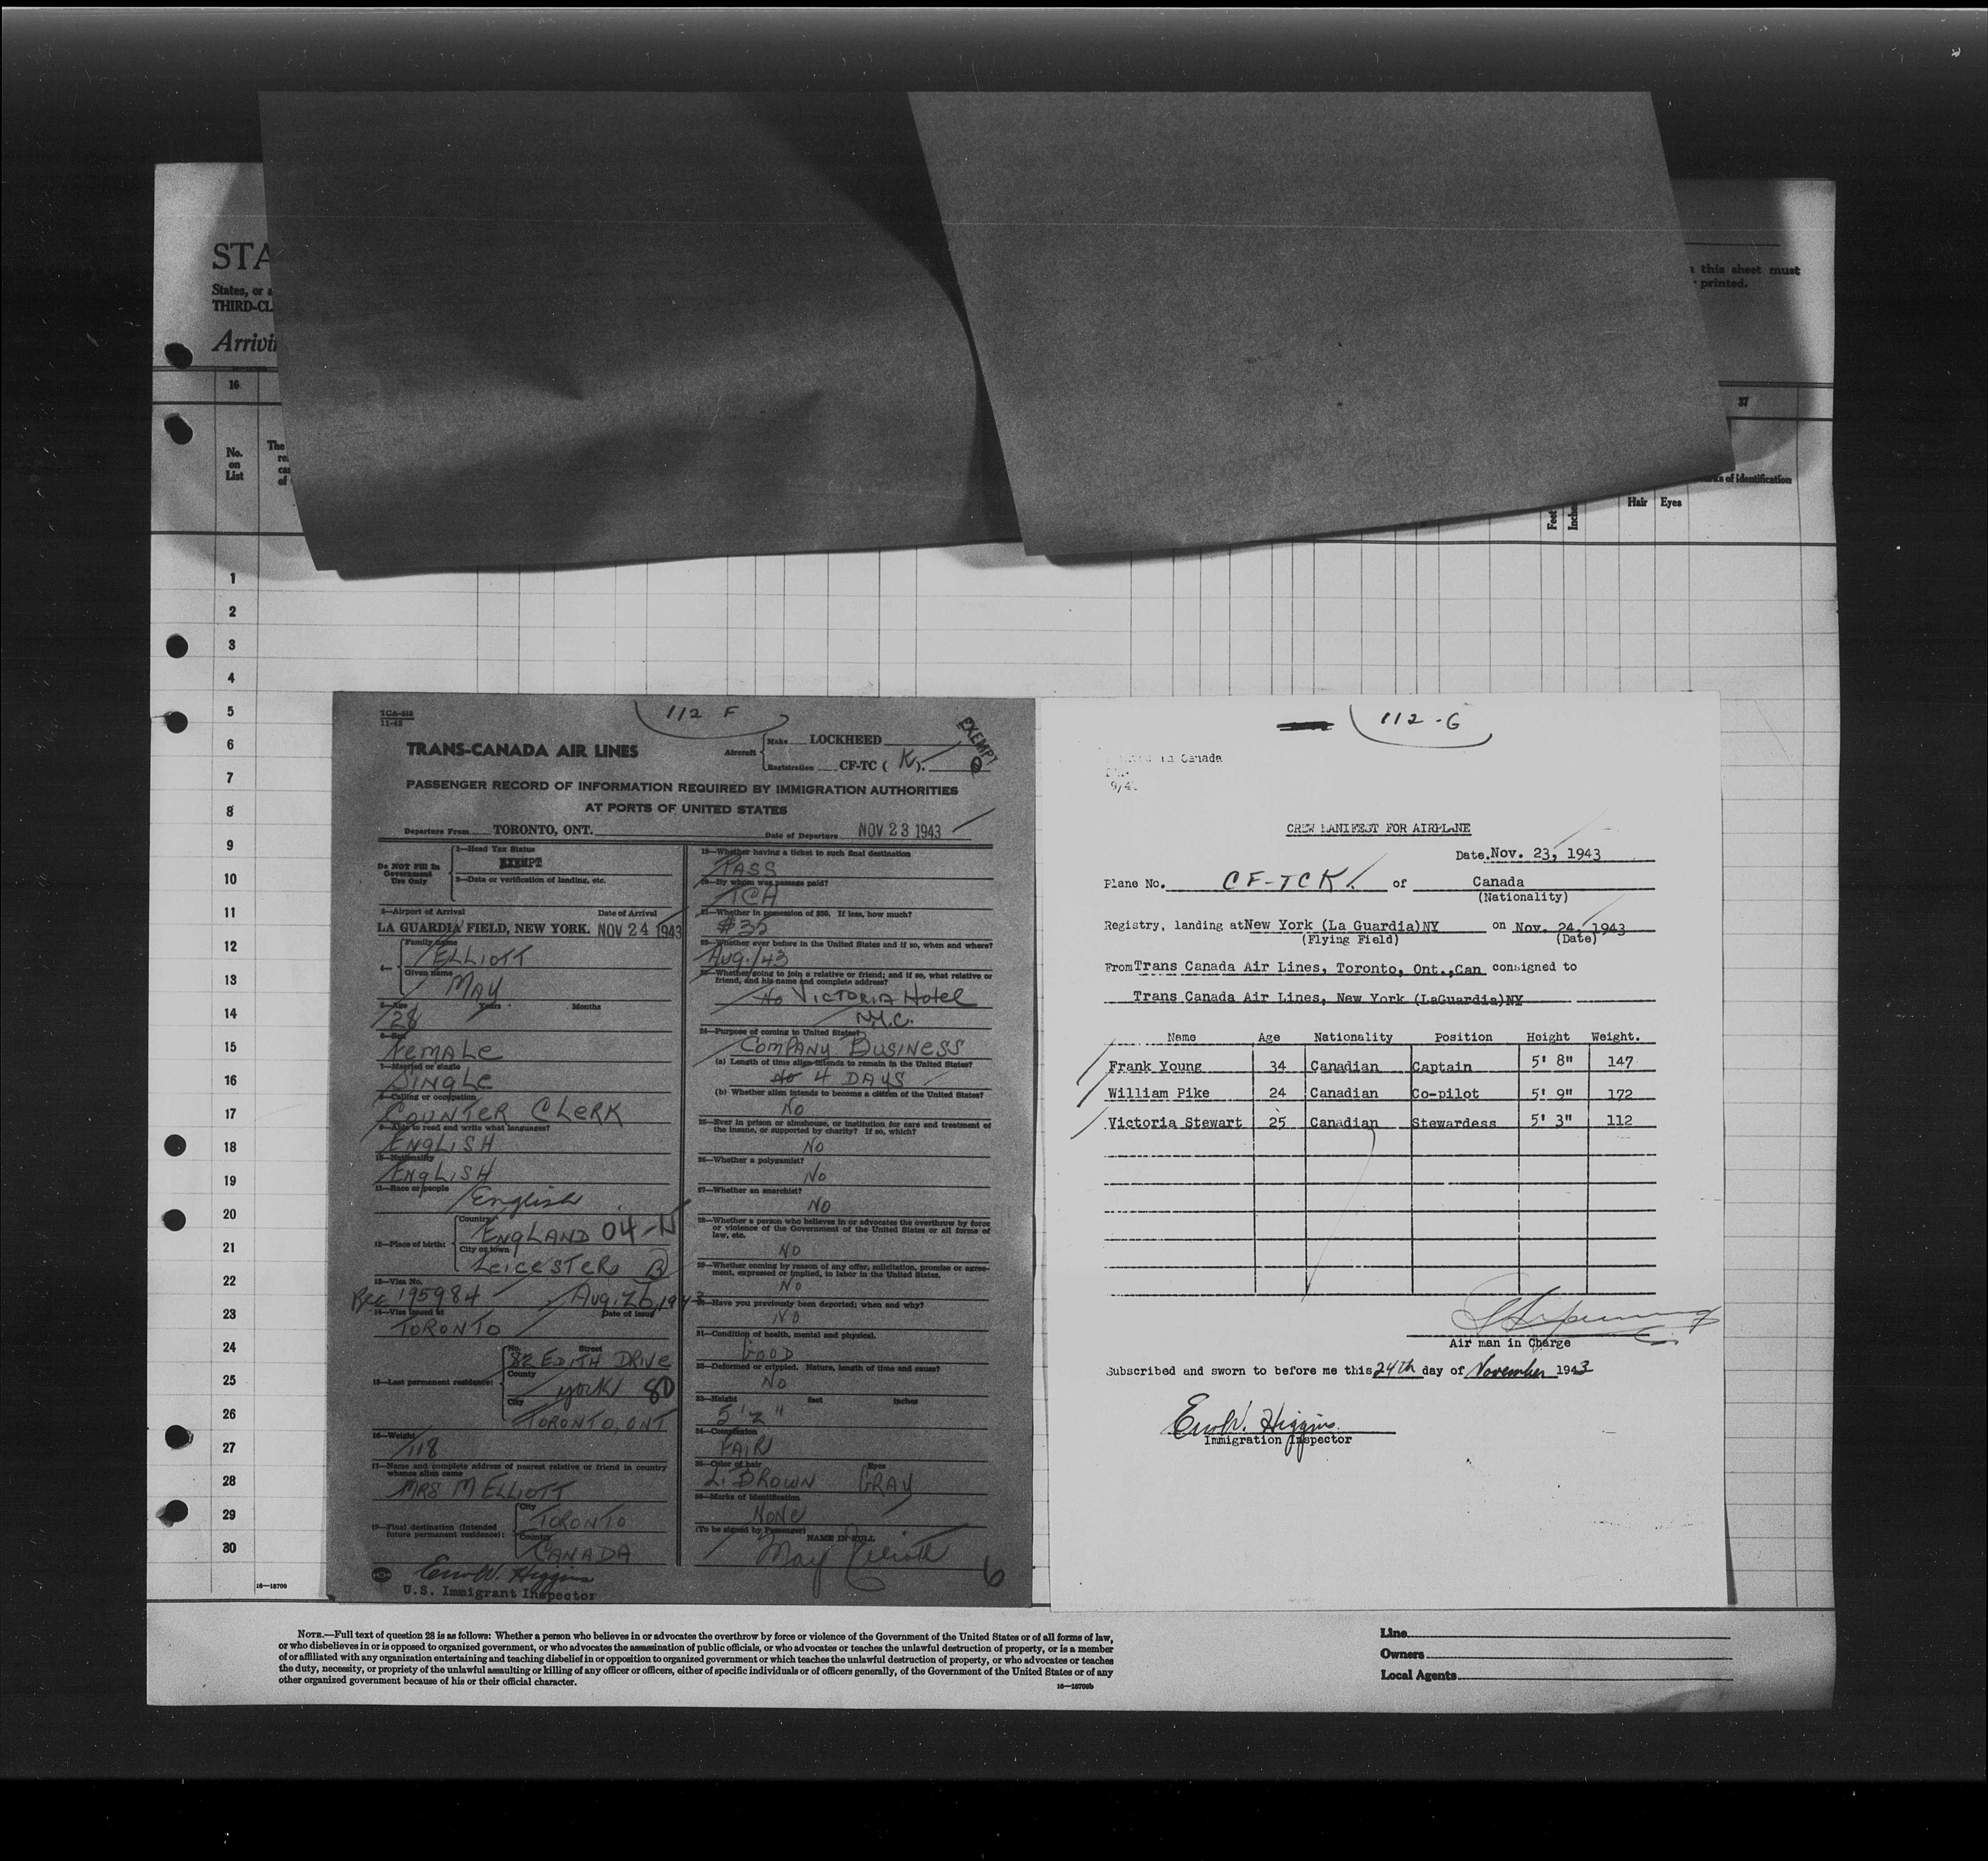 STA
States, or a
THIRD-CL
Arrivi
this sheet must
printed.
16
37
No.
on
List
The
re
ca
of
Feet
Inche
Hair Eyes
ks of identification
1
2
3
4
5
6
7
8
9
10
11
12
13
14
15
16
17
18
19
20
21
22
23
24
25
26
27
28
29
30
16—18709
112 F
11-42
TRANS-CANADA AIR LINES
Aircraft
Make LOCKHEED
Registration CF-TC ( K ).
EXEMPT
PASSENGER RECORD OF INFORMATION REQUIRED BY IMMIGRATION AUTHORITIES
AT PORTS OF UNITED STATES
Departure From TORONTO, ONT. Date of Departure NOV 23 1943
Do NOT Fill In
Government
Use Only
1—Head Tax Status
EXEMPT
2—Date or verification of landing, etc.
3—Airport of Arrival Date of Arrival
LA GUARDIA FIELD, NEW YORK. NOV 24 1943
4—
Family name
ELLIOTT
Given name
MAY
5—Age Years Months
28
6—Sex
FEMALE
7—Married or single
SINGLE
8—Calling or occupation
COUNTER CLERK
9—Able to read and write what languages?
ENGLISH
10—Nationality
ENGLISH
11—Race or people
English
12—Place of birth:
Country
ENGLAND 04-N
City or town
LEICESTER B
13—Visa No.
Rec 195984 Aug. 26, 1943
14—Visa issued at Date of issue
TORONTO
15—Last permanent residence:
No. Street
82 EDITH DRIVE
County
york 8D
City
TORONTO, ONT
16—Weight
118
17—Name and complete address of nearest relative or friend in country
whence alien came
MRS M ELLIOTT
Final destination (Intended
future permanent residence):
City
TORONTO
Country
CANADA
U.S. Immigrant Inspector
18—Whether having a ticket to such final destination
PASS
20—By whom was passage paid?
TCA
21—Whether in possession of $50. If less, how much?
$35
22—Whether ever before in the United States and if so, when and where?
Aug./43
23—Whether going to join a relative or friend; and if so, what relative or
friend, and his name and complete address?
No VICTORIA Hotel
N.Y.C.
24—Purpose of coming to United States?
COMPANY BUSINESS
(a) Length of time alien intends to remain in the United States?
No 4 DAYS
(b) Whether alien intends to become a citizen of the United States?
No
25—Ever in prison or almshouse, or institution for care and treatment of
the insane, or supported by charity? If so, which?
No
26—Whether a polygamist?
No
27—Whether an anarchist?
No
28—Whether a person who believes in or advocates the overthrow by force
or violence of the Government of the United States or all forms of
law, etc.
NO
29—Whether coming by reason of any offer, solicitation, promise or agree-
ment, expressed or implied, to labor in the United States.
No
30—Have you previously been deported; when and why?
NO
31—Condition of health, mental and physical.
GOOD
32—Deformed or crippled. Nature, length of time and cause?
No
33—Height feet inches
5' 2"
34—Complexion
FAIR
35—Color of hair Eyes
L. BROWN GRAY
36—Marks of identification
NONE
(To be signed by Passenger) NAME IN FULL
May Elliott
6
112-G
in Canada
CREW MANIFEST FOR AIRPLANE
Date. Nov. 23, 1943
Plane No. CF-TCK of Canada
(Nationality)
Registry, landing at New York (La Guardia) NY on Nov. 24, 1943
(Flying Field) (Date)
From Trans Canada Air Lines, Toronto, Ont., Can consigned to
Trans Canada Air Lines, New York (LaGuardia) NY
Name Age Nationality Position Height Weight.
Frank Young 34 Canadian Captain 5' 8" 147
William Pike 24 Canadian Co-pilot 5' 9" 172
Victoria Stewart 25 Canadian Stewardess 5' 3" 112
Air man in Charge
Subscribed and sworn to before me this 24th day of November 1943
Higgins
Immigration Inspector
NOTE.—Full text of question 28 is as follows: Whether a person who believes in or advocates the overthrow by force or violence of the Government of the United States or of all forms of law,
or who disbelieves in or is opposed to organized government, or who advocates the assassination of public officials, or who advocates or teaches the unlawful destruction of property, or is a member
of or affiliated with any organization entertaining and teaching disbelief in or opposition to organized government or which teaches the unlawful destruction of property, or who advocates or teaches
the duty, necessity, or propriety of the unlawful assaulting or killing of any officer or officers, either of specific individuals or of officers generally, of the Government of the United States or of any
other organized government because of his or their official character.
16—18709b
Line
Owners
Local Agents